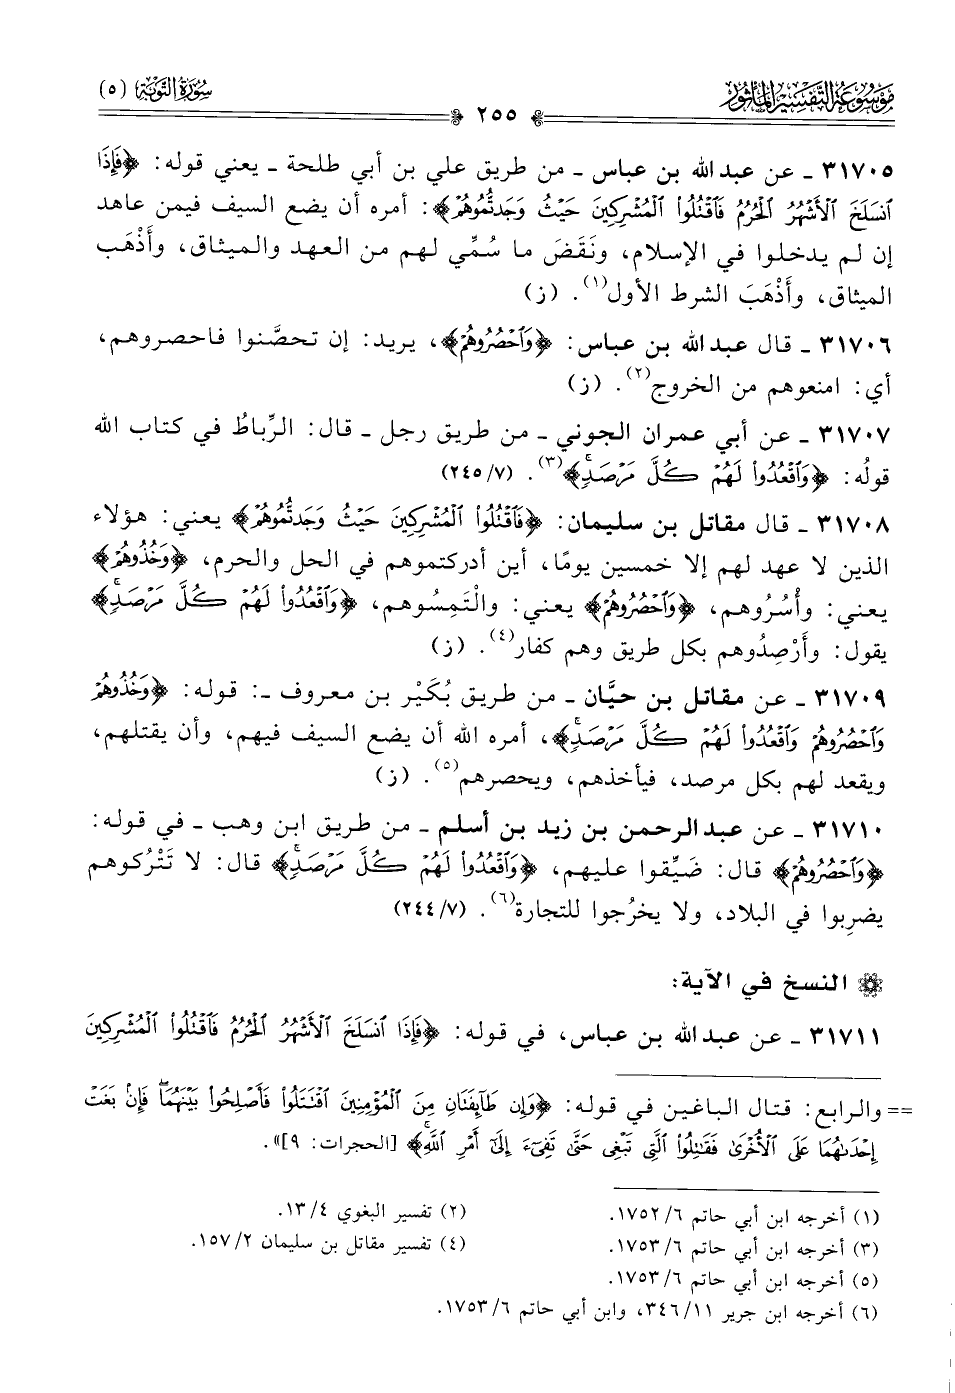 موسوعة التفسير المأثور
سورة التوبة (٥)
٢٥٥
٣١٧٠٥ ـ عن عبد الله بن عباس ـ من طريق علي بن أبي طلحة ـ يعني قوله: ﴿فَإِذَا
ٱنسَلَخَ ٱلْأَشْهُرُ ٱلْحُرُمُ فَٱقْتُلُواْ ٱلْمُشْرِكِينَ حَيْثُ وَجَدتُّمُوهُمْ﴾: أمره أن يضع السيف فيمن عاهد
إن لم يدخلوا في الإسلام، ونَقَضَ ما سُمِّي لهم من العهد والميثاق، وأَذْهَب
الميثاق، وأَذْهَبَ الشرط الأول(١). (ز)
٣١٧٠٦ ـ قال عبد الله بن عباس: ﴿وَٱحْصُرُوهُمْ﴾، يريد: إن تحصَّنوا فاحصروهم،
أي: امنعوهم من الخروج(٢). (ز)
٣١٧٠٧ ـ عن أبي عمران الجوني ـ من طريق رجل ـ قال: الرِّباطُ في كتاب الله
قولُه: ﴿وَٱقْعُدُواْ لَهُمْ كُلَّ مَرْصَدٍۚ﴾(٣). (٧/٢٤٥)
٣١٧٠٨ ـ قال مقاتل بن سليمان: ﴿فَٱقْتُلُواْ ٱلْمُشْرِكِينَ حَيْثُ وَجَدتُّمُوهُمْ﴾ يعني: هؤلاء
الذين لا عهد لهم إلا خمسين يومًا، أين أدركتموهم في الحل والحرم، ﴿وَخُذُوهُمْ﴾
يعني: وأْسُرُوهم، ﴿وَٱحْصُرُوهُمْ﴾ يعني: والْتَمِسُوهم، ﴿وَٱقْعُدُواْ لَهُمْ كُلَّ مَرْصَدٍۚ﴾
يقول: وأَرْصِدُوهم بكل طريق وهم كفار(٤). (ز)
٣١٧٠٩ ـ عن مقاتل بن حيَّان ـ من طريق بُكَيْر بن معروف ـ: قوله: ﴿وَخُذُوهُمْ
وَٱحْصُرُوهُمْ وَٱقْعُدُواْ لَهُمْ كُلَّ مَرْصَدٍۚ﴾، أمره الله أن يضع السيف فيهم، وأن يقتلهم،
ويقعد لهم بكل مرصد، فيأخذهم، ويحصرهم(٥). (ز)
٣١٧١٠ ـ عن عبد الرحمن بن زيد بن أسلم ـ من طريق ابن وهب ـ في قوله:
﴿وَٱحْصُرُوهُمْ﴾ قال: ضَيِّقوا عليهم، ﴿وَٱقْعُدُواْ لَهُمْ كُلَّ مَرْصَدٍۚ﴾ قال: لا تَتْرُكوهم
يضرِبوا في البلاد، ولا يخرُجوا للتجارة(٦). (٧/٢٤٤)
النسخ في الآية:
٣١٧١١ ـ عن عبد الله بن عباس، في قوله: ﴿فَإِذَا ٱنسَلَخَ ٱلْأَشْهُرُ ٱلْحُرُمُ فَٱقْتُلُواْ ٱلْمُشْرِكِينَ
== والرابع: قتال الباغين في قوله: ﴿وَإِن طَآئِفَتَانِ مِنَ ٱلْمُؤْمِنِينَ ٱقْتَتَلُواْ فَأَصْلِحُواْ بَيْنَهُمَاۖ فَإِنۢ بَغَتْ
إِحْدَىٰهُمَا عَلَى ٱلْأُخْرَىٰ فَقَٰتِلُواْ ٱلَّتِى تَبْغِى حَتَّىٰ تَفِىٓءَ إِلَىٰٓ أَمْرِ ٱللَّهِۚ﴾ [الحجرات: ٩]».
(١) أخرجه ابن أبي حاتم ٦/١٧٥٢.
(٢) تفسير البغوي ٤/١٣.
(٣) أخرجه ابن أبي حاتم ٦/١٧٥٣.
(٤) تفسير مقاتل بن سليمان ٢/١٥٧.
(٥) أخرجه ابن أبي حاتم ٦/١٧٥٣.
(٦) أخرجه ابن جرير ١١/٣٤٦، وابن أبي حاتم ٦/١٧٥٣.